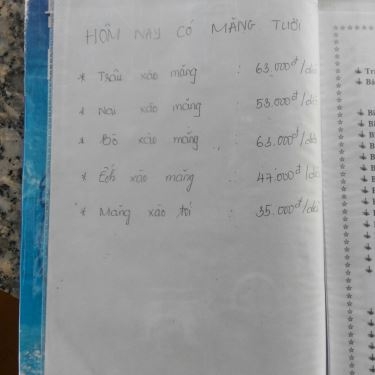 HÔM NAY CÓ MĂNG TƯƠI
* Trâu xào măng : 63.000đ/dĩa
* Nai xào măng : 53.000đ/dĩa
* Bò xào măng : 63.000đ/dĩa
* Ếch xào măng : 47.000đ/dĩa
* Măng xào tỏi : 35.000đ/dĩa